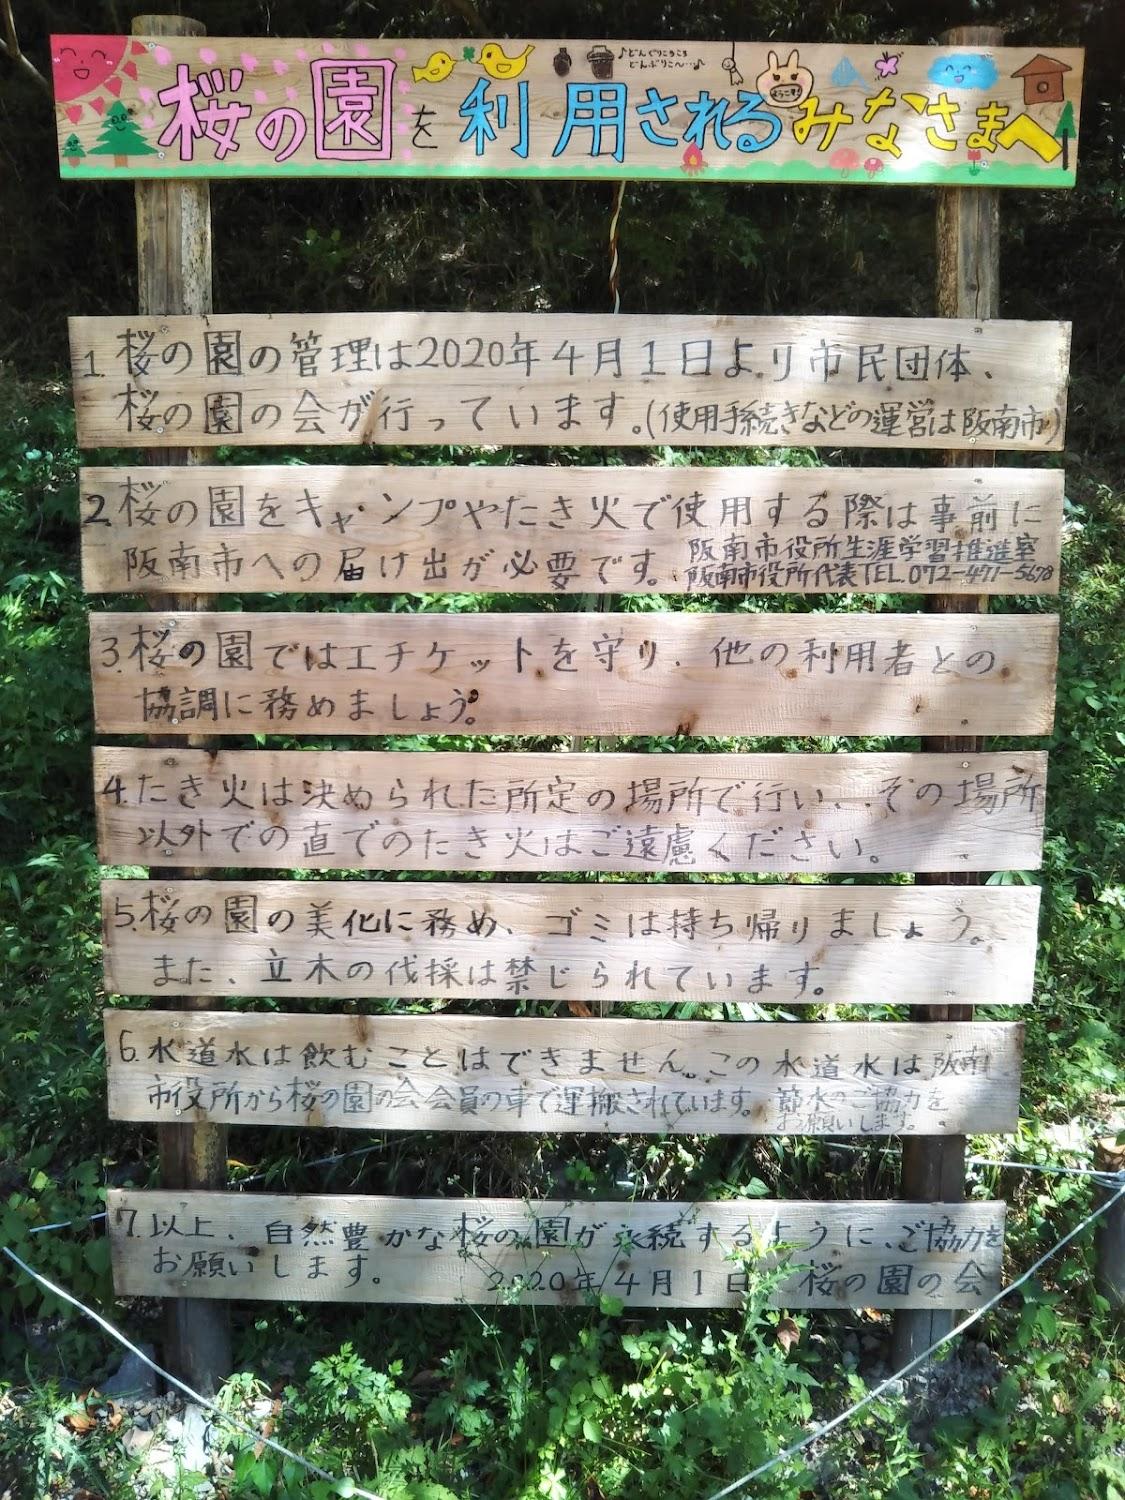 桜の園を利用されるみなさまへ
♪どんぐりころころ
どんぶりこ〜…♪
ようこそ!
1. 桜の園の管理は2020年4月1日より市民団体、
桜の園の会が行っています。(使用手続きなどの運営は阪南市)
2. 桜の園をキャンプやたき火で使用する際は事前に
阪南市への届け出が必要です。
阪南市役所生涯学習推進室
阪南市役所代表TEL.072-471-5678
3. 桜の園ではエチケットを守り、他の利用者との
協調に務めましょう。
4. たき火は決められた所定の場所で行い、その場所
以外での直でのたき火はご遠慮ください。
5. 桜の園の美化に務め、ゴミは持ち帰りましょう。
また、立木の伐採は禁じられています。
6. 水道水は飲むことはできません。この水道水は阪南
市役所から桜の園の会会員の車で運搬されています。節水のご協力を
お願いします。
7. 以上、自然豊かな桜の園が永続するように、ご協力を
お願いします。 2020年4月1日 桜の園の会